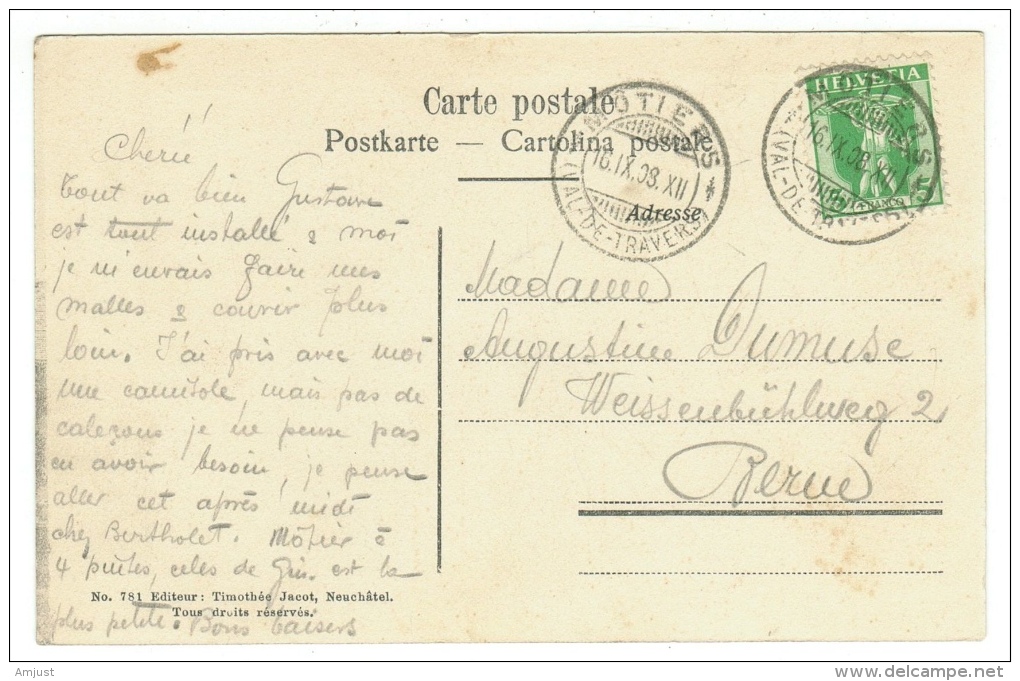 Carte postale
Postkarte — Cartolina postale
Adresse
HELVETIA
5
FRANCO
MÔTIERS
16.IX.08.XII
(VAL-DE-TRAVERS)
MÔTIERS
16.IX.08.XII
(VAL-DE-TRAVERS)
Chérie
Tout va bien Gustave
est tout installé & moi
je m'envais faire mes
malles & courir plus
loin. J'ai pris avec moi
une camisole, mais pas de
caleçons je ne pense pas
en avoir besoin, je pense
aller cet après midi
chez Bertholet. Môtier à
4 puites, celes de est la
plus petite. Bons baisers
Madame
Augustine Dumuse
Weissenbühlweg 2
Berne
No. 781 Editeur: Timothée Jacot, Neuchâtel.
Tous droits réservés.
Amjust
delcampe.net